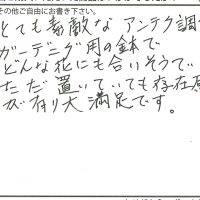 その他ご自由にお書き下さい。
とても素敵な アンテク調
ガーデニング用の鉢で
どんな花にも合いそうで
ただ 置いていても存在感
が有り大満足です。